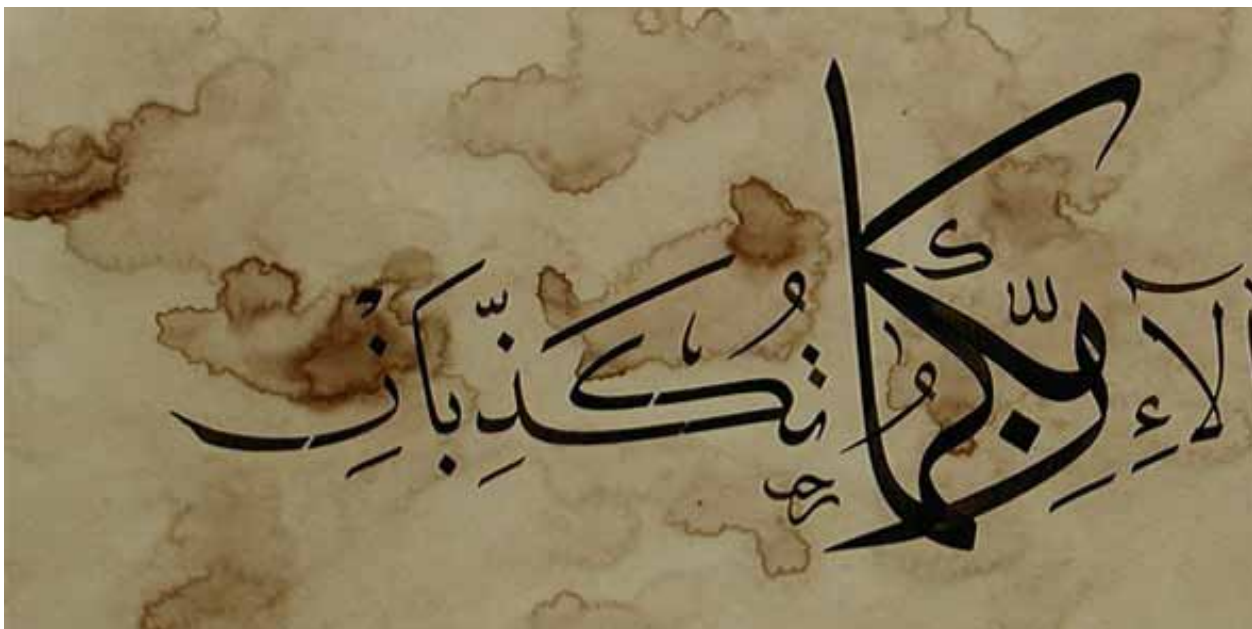 آلَاءِ رَبِّكُمَا تُكَذِّبَانِ